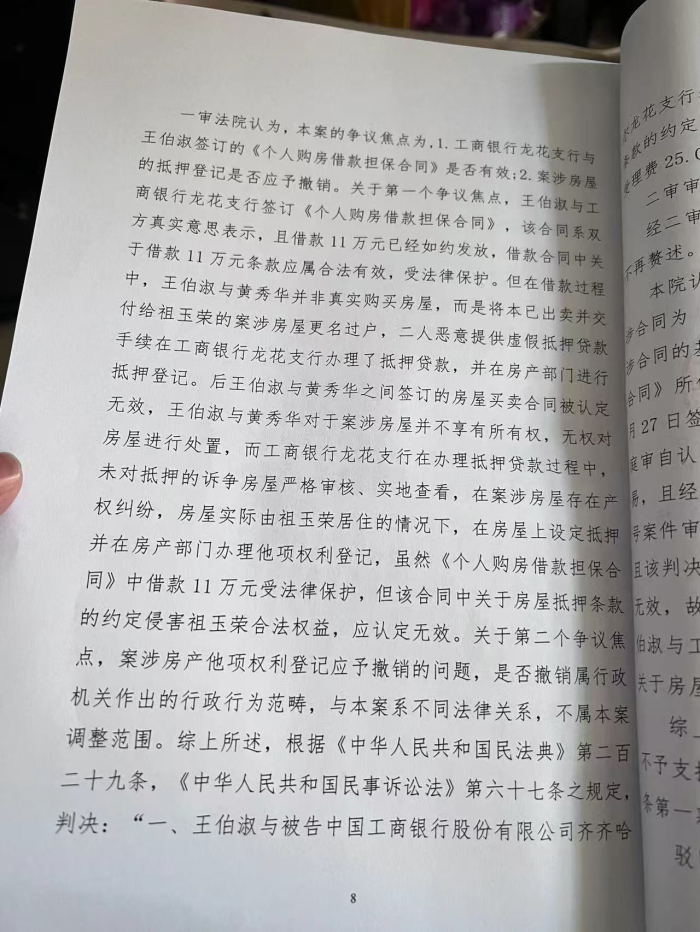 一审法院认为，本案的争议焦点为，1.工商银行龙花支行与
王伯淑签订的《个人购房借款担保合同》是否有效;2.案涉房屋
的抵押登记是否应予撤销。关于第一个争议焦点，王伯淑与工
商银行龙花支行签订《个人购房借款担保合同》，该合同系双
方真实意思表示，且借款11万元已经如约发放，借款合同中关
于借款11万元条款应属合法有效，受法律保护。但在借款过程
中，王伯淑与黄秀华并非真实购买房屋，而是将本已出卖并交
付给祖玉荣的案涉房屋更名过户，二人恶意提供虚假抵押贷款
手续在工商银行龙花支行办理了抵押贷款，并在房产部门进行
抵押登记。后王伯淑与黄秀华之间签订的房屋买卖合同被认定
无效，王伯淑与黄秀华对于案涉房屋并不享有所有权，无权对
房屋进行处置，而工商银行龙花支行在办理抵押贷款过程中，
未对抵押的诉争房屋严格审核、实地查看，在案涉房屋存在产
权纠纷，房屋实际由祖玉荣居住的情况下，在房屋上设定抵押
并在房产部门办理他项权利登记，虽然《个人购房借款担保合
同》中借款11万元受法律保护，但该合同中关于房屋抵押条款
的约定侵害祖玉荣合法权益，应认定无效。关于第二个争议焦
点，案涉房产他项权利登记应予撤销的问题，是否撤销属行政
机关作出的行政行为范畴，与本案系不同法律关系，不属本案
调整范围。综上所述，根据《中华人民共和国民法典》第二百
二十九条，《中华人民共和国民事诉讼法》第六十七条之规定，
判决：“一、王伯淑与被告中国工商银行股份有限公司齐齐哈
8
龙花支行
条款的约定
受理费25.0
二审审
经二审
不再赘述。
本院认
涉合同为
涉合同的
合同》所
月27日签
庭审自认
易，且经
号案件审
且该判决
无效，故
伯淑与工
关于房屋
综上
不予支持
条第一
驳